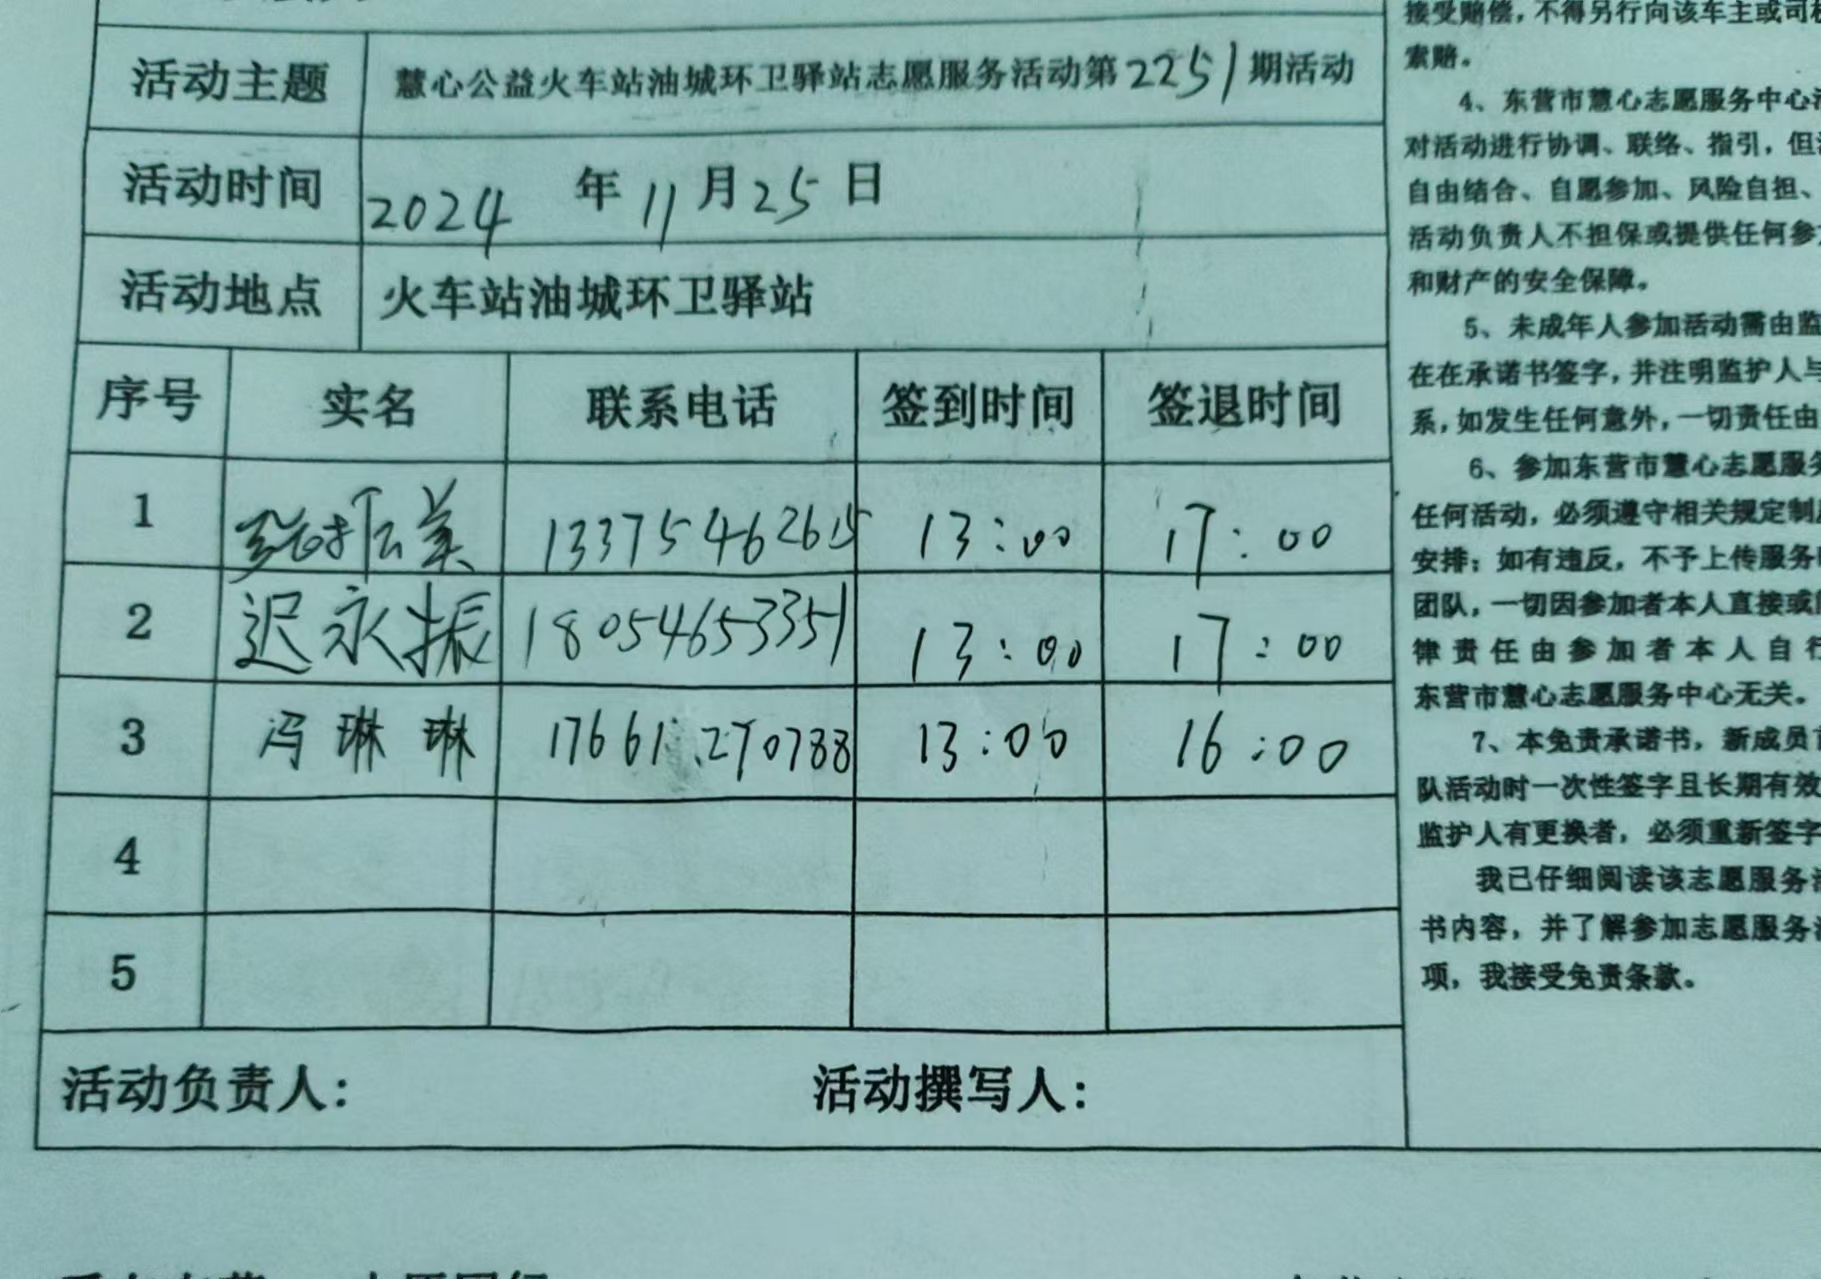 活动主题 慧心公益火车站油城环卫驿站志愿服务活动第2251期活动
活动时间 2024 年 11 月 25 日
活动地点 火车站油城环卫驿站
序号 实名 联系电话 签到时间 签退时间
1 13375462615 13:00 17:00
2 迟永振 18054653351 13:00 17:00
3 冯琳琳 17661270788 13:00 16:00
4
5
活动负责人: 活动撰写人:
接受赔偿，不得另行向该车主或司
索赔。
4、东营市慧心志愿服务中心
对活动进行协调、联络、指引，但
自由结合、自愿参加、风险自担、
活动负责人不担保或提供任何参
和财产的安全保障。
5、未成年人参加活动需由监
在在承诺书签字，并注明监护人与
系，如发生任何意外，一切责任由
6、参加东营市慧心志愿服务
任何活动，必须遵守相关规定制
安排；如有违反，不予上传服务
团队，一切因参加者本人直接或
律责任由参加者本人自行
东营市慧心志愿服务中心无关。
7、本免责承诺书，新成员
队活动时一次性签字且长期有效
监护人有更换者，必须重新签字
我已仔细阅读该志愿服务
书内容，并了解参加志愿服务
项，我接受免责条款。